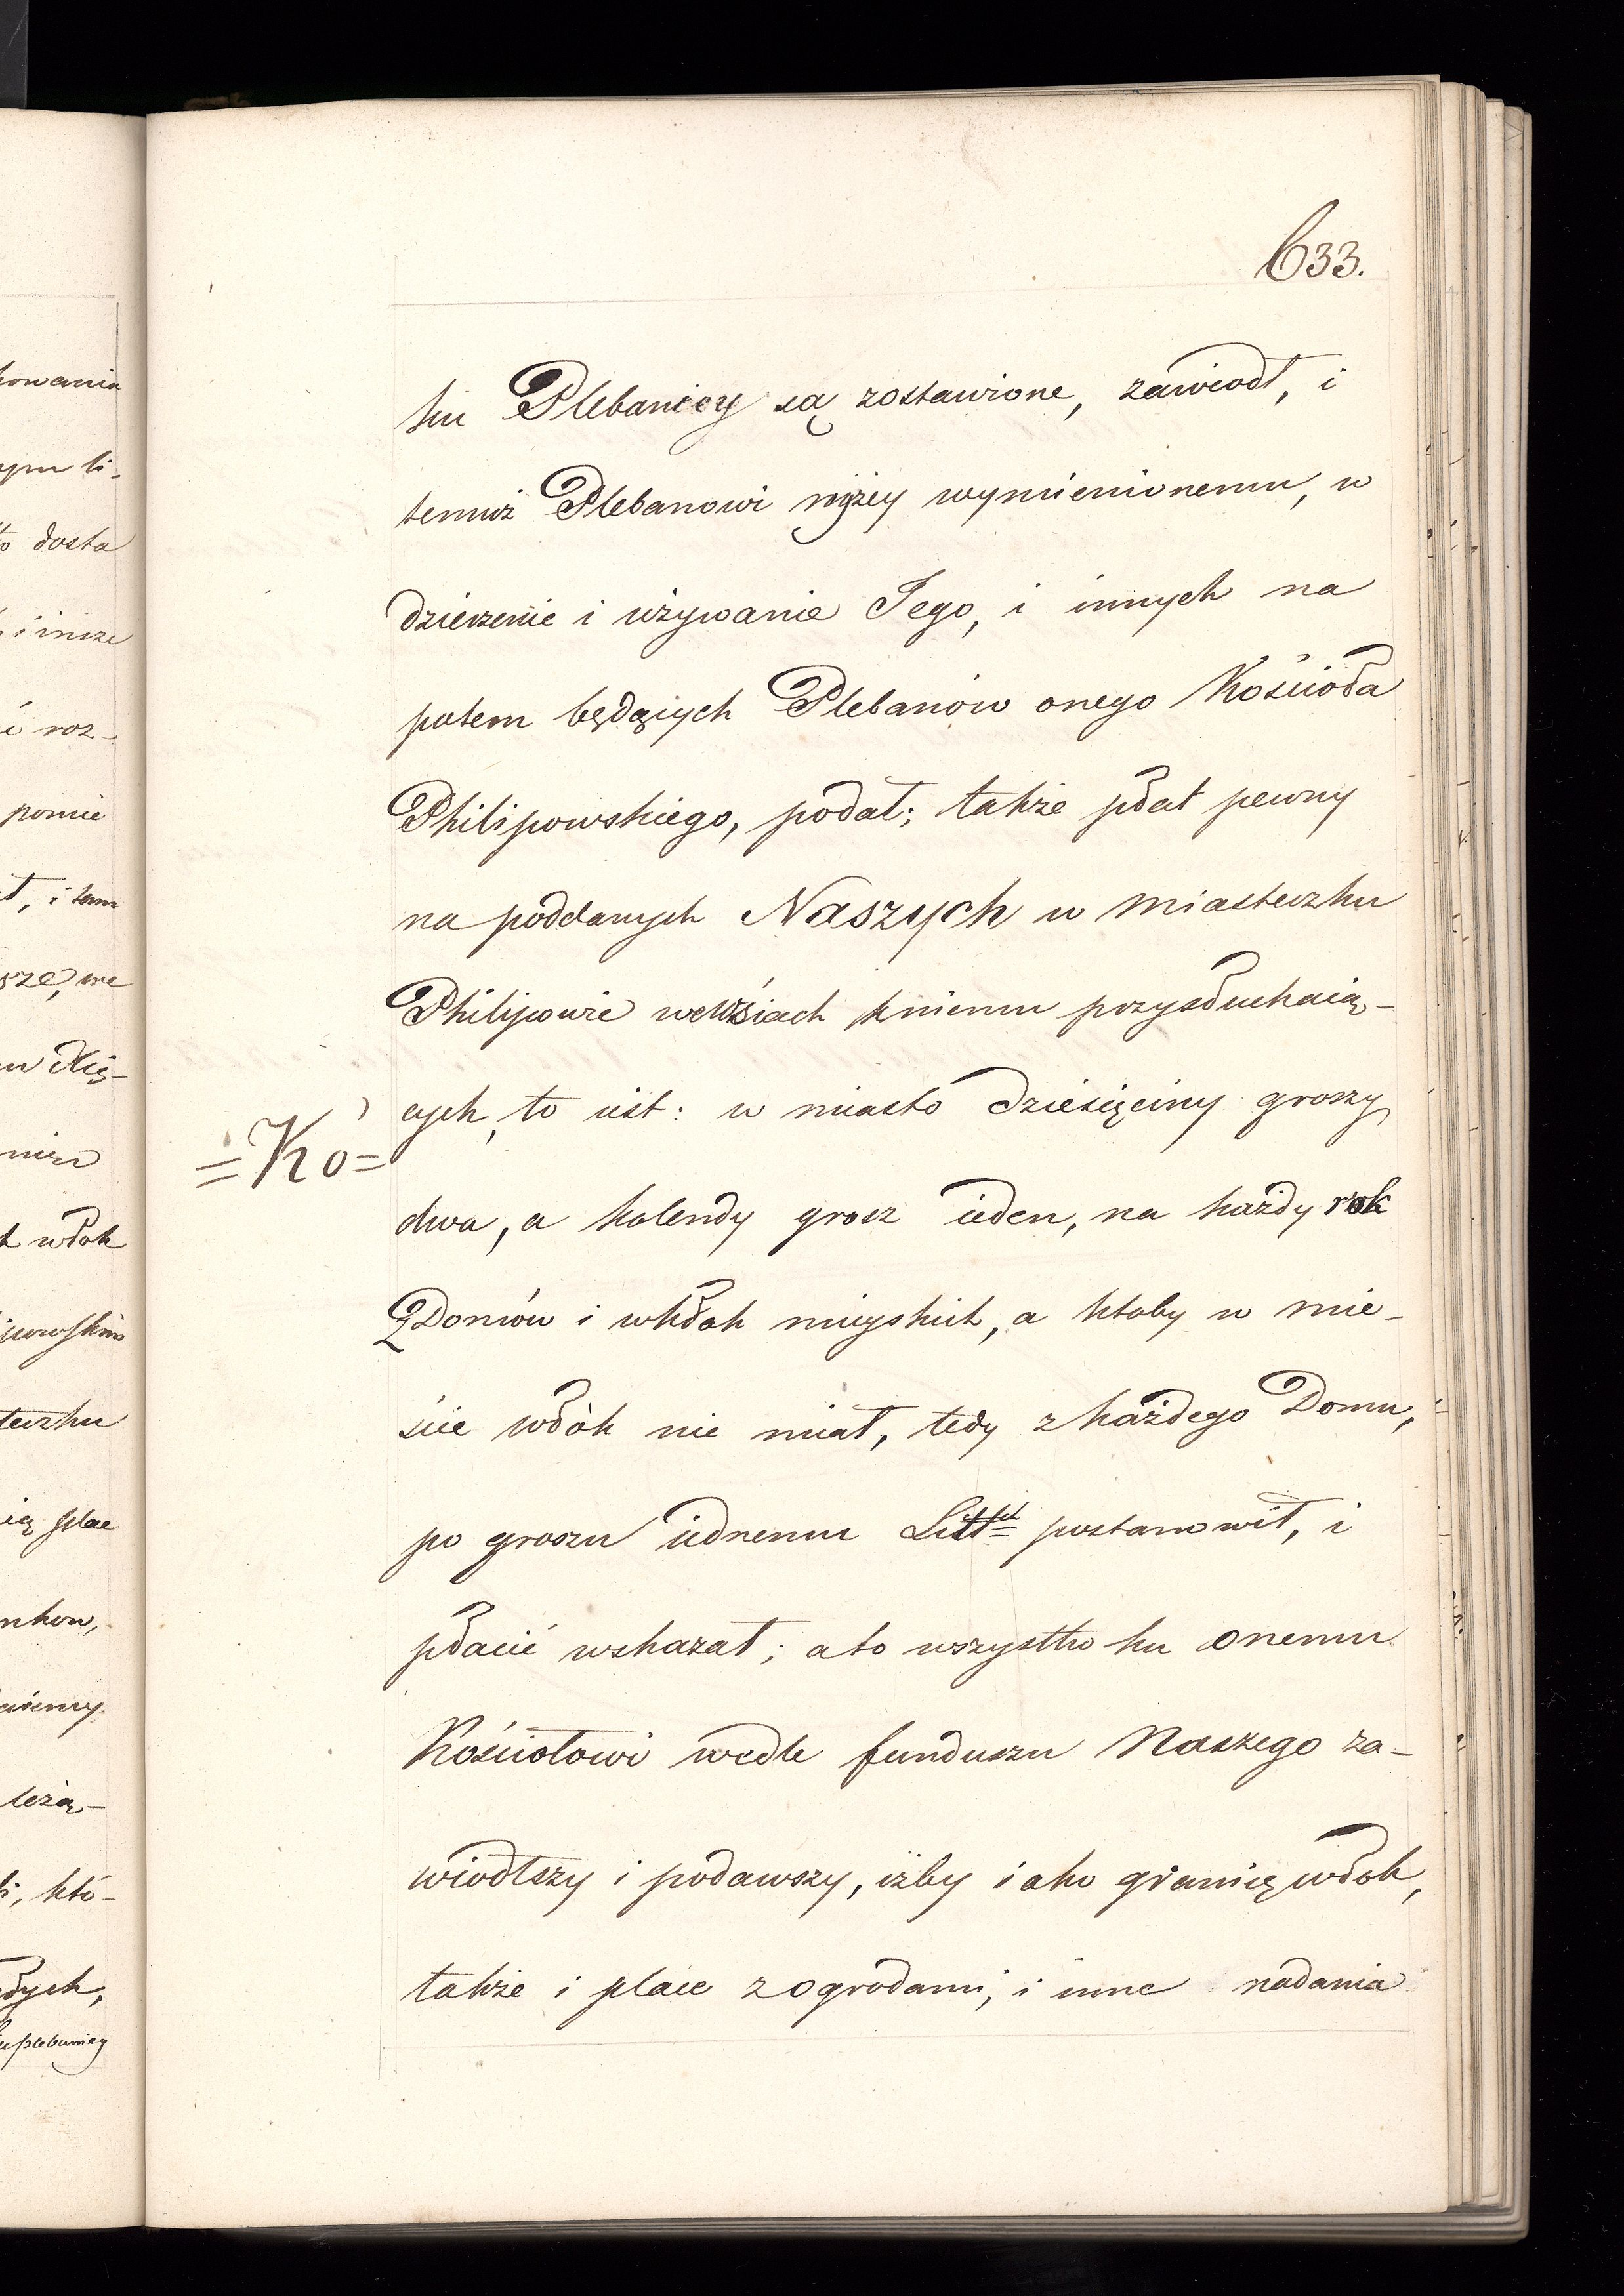 633.
ku Plebaniey są zostawione, zawiodł, i
temuż Plebanowi niżey wymienionemu, w
dzierżenie i używanie Jego, i innych na
potem będących Plebanów onego Kościoła
Philipowskiego, podał; także płat pewny
na poddanych Naszych w miasteczku
Philipowie we wsiach kniemu przysłuchaią-
cych, to iest: w miasto dziesięciny groszy
=Ko=
dwa, a kolendy grosz ieden, na każdy rok
z Domów i włok mieyskich, a ktoby w mie-
ście włók nie miał, tedy z każdego Domu,
po groszu iednemu Litt postanowił, i
płacić wskazał; a to wszystko ku onemu
Kościołowi wedle funduszu Naszego za-
wiodłszy i podawszy, iżby iako granicę włok,
także i place z ogrodami, i inne nadania
howania
ym li-
to dosta
i insze
i roz-
pomie
ł, i tam
sze, we
nież
włok
teczku
plac
nkow,
leżą-
któ-
łych,
ku plebaniey